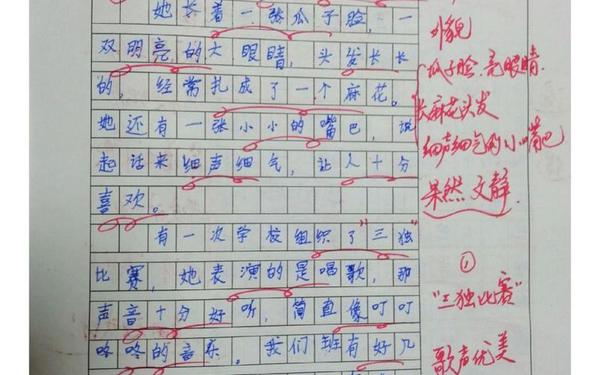 她长着一张瓜子脸，一
双明亮的大眼睛，头发长长
的，经常扎成了一个麻花。
她还有一张小小的嘴巴，说
起话来细声细气，让人十分
喜欢。
有一次学校组织了"三独"
比赛，她表演的是唱歌，那
声音十分好听，简直像叮叮
咚咚的音乐。我们班有好几
外貌
瓜子脸.亮眼睛.
长麻花头发
细声细气的小嘴巴
果然文静.
①
"三独比赛"
歌声优美